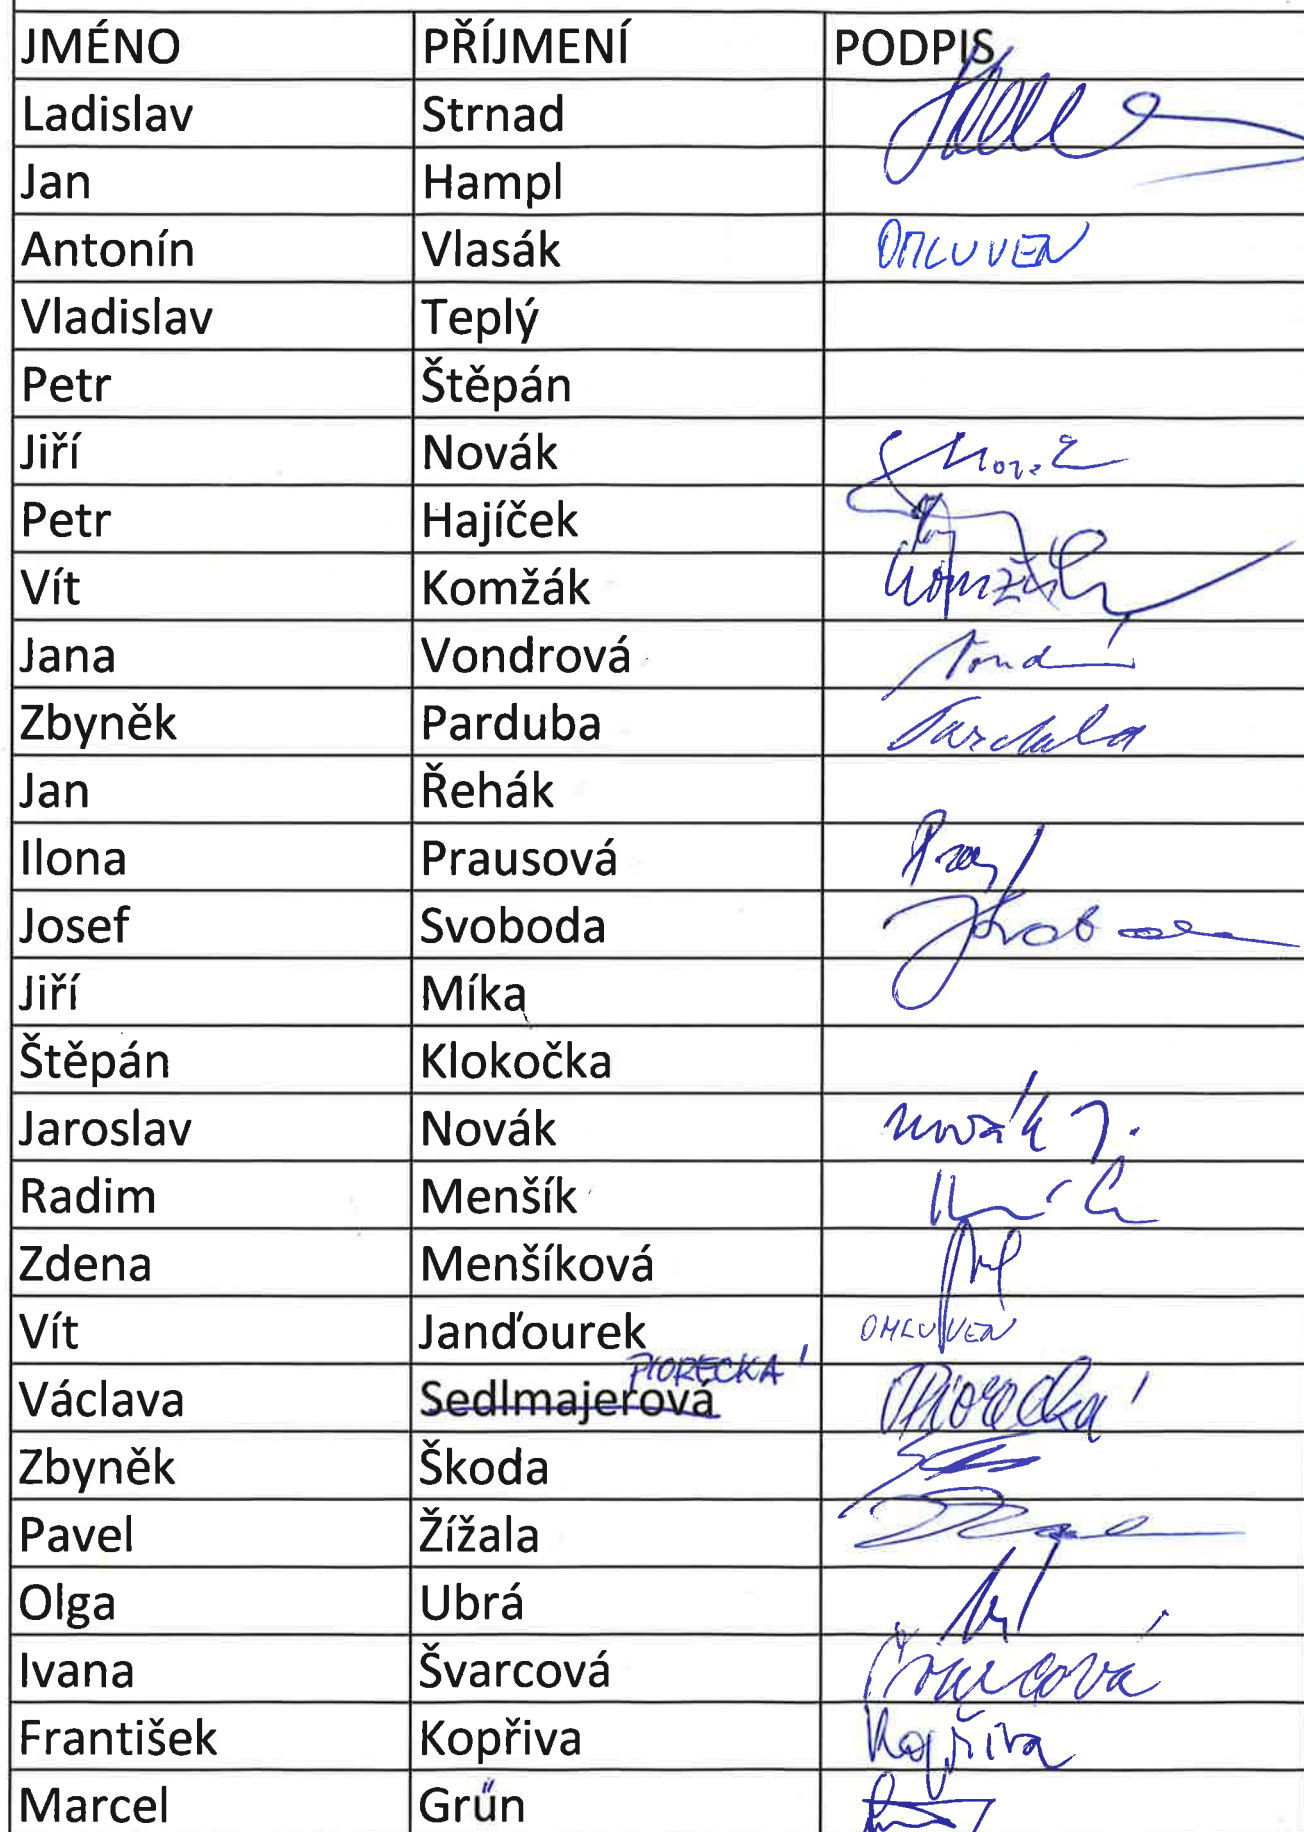 JMÉNO PŘÍJMENÍ PODPIS
Ladislav Strnad
Jan Hampl
Antonín Vlasák OMLUVEN
Vladislav Teplý
Petr Štěpán
Jiří Novák
Petr Hajíček
Vít Komžák Komžák
Jana Vondrová
Zbyněk Parduba Parduba
Jan Řehák
Ilona Prausová
Josef Svoboda Svoboda
Jiří Míka
Štěpán Klokočka
Jaroslav Novák Novák J.
Radim Menšík
Zdena Menšíková
Vít Janďourek OMLUVEN
PIORECKÁ
Václava Sedlmajerová Piorecká
Zbyněk Škoda
Pavel Žížala
Olga Ubrá
Ivana Švarcová Švarcová
František Kopřiva Kopřiva
Marcel Grűn